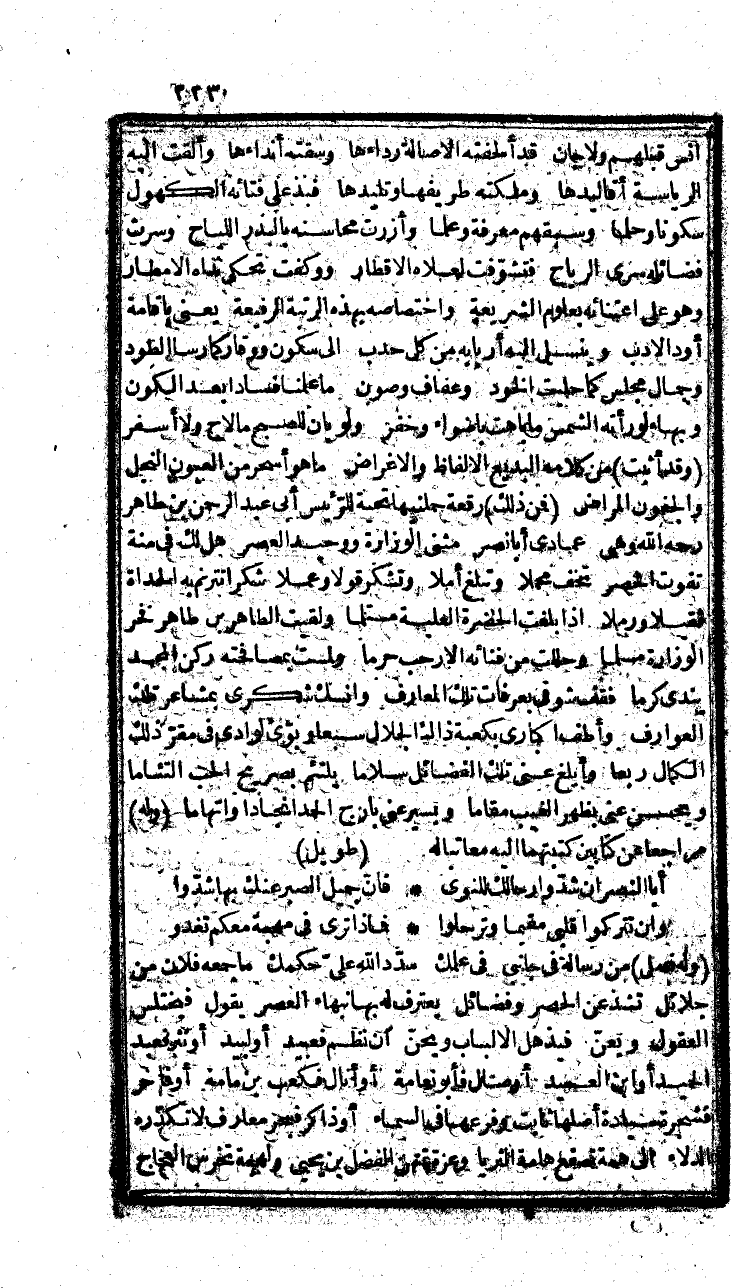 ٢٢٣
انس قبلهم ولا جان قد ألحفته الاصالة رداءها وسقته أنداءها وألقت اليه
الرياسة أقاليدها وملكته طريفها وتليدها فبذ على فتائه الكهول
سكونا وحلما وسبقهم معرفة وعلما وأزرت محاسنه بالبدر اللياح وسرت
فضائله سرى الرياح فتشوّفت لعلاه الاقطار ووكفت تحكى نداه الامطار
وهو على اعتنائه بعلوم الشريعة واختصاصه بهذه الرتبة الرفيعة يعنى باقامة
أود الادب وينسل اليه أربابه من كل حدب الى سكون ووقار كما رسا الطود
وجمال مجلس كما حليت الخود وعفاف وصون ما علمنا فسادا بعد الكون
وبهاء لو رأته الشمس ما باهت باضواء وخفر ولو بان للصبح ما لاح ولا أسفر
(وقد أثبت) من كلامه البديع الالفاظ والاغراض ما هو أسحر من العيون النجل
والجفون المراض (فن ذلك) رقعة حملنيها تحية للرّئيس أبى عبد الرحمن بن طاهر
رحمه الله وهى عمادى أبا نصر مثنى الوزارة ووحيد العصر هل لك فى منة
تفوت الحصر تخف محملا وتبلغ أملا وتشكر قولا وعملا شكرا تترنم به الحداة
ثقيلا ورملا اذا بلغت الحضرة العلية مستلما ولقيت الطاهر بن طاهر فخر
الوزارة مسلما وحللت من فنائه الارحب حرما ولمست بمصافحته ركن المجد
يندى كرما فقف شوقى بعرفات تلك المعارف وانسك شكرى بمشاعر تلك
العوارف وأطف اكبارى بكعبة ذلك الجلال سبعا وبوّئ لودادى فى مقرّ ذلك
الكمال ربعا وأبلغ عنى تلك الفضائل سلاما يلتئم بصريح الحب التئاما
ويحسن عنى بظهر الغيب مقاما ويسير عنى بأرج الحمد انجادا واتهاما (وله)
مراجعا عن كتابين كتبتهما اليه معاتبا له (طويل)
أبا النصر ان شدّوا رحالك للنوى * فان جميل الصبر عنك بها شدّوا
وان تتركوا قلبى مقيما وترحلوا * فماذا ترى فى مهجة معكم تغدو
(وله فصل) من رسالة فى جانبى فى علمك سدّد الله علىّ حكمك ما جمعه فلان من
جلائل تشذ عن الحصر وفضائل يعترف له بها نبهاء العصر يقول فيختلس
العقول ويعنّ فيذهل الالباب ويجنّ ان نظم فعبيد أو لبيد أو نثر فعبد
الحميد أو ابن العميد أو صال فأبو نعامة أو أنال فكعب بن مامة أو فاخر
فشجرة سيادة أصلها ثابت وفرعها فى السماء أو ذاكر فبحر معارف لا تكدّره
الدلاء الى همة تصفع هامة الثريا وعزة تهزّ المفضل بن يحيى ولهجة تخرس العجاج